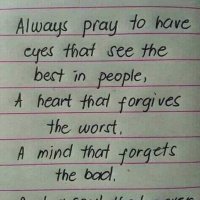 Always pray to have
eyes that see the
best in people,
A heart that forgives
the worst,
A mind that forgets
the bad.